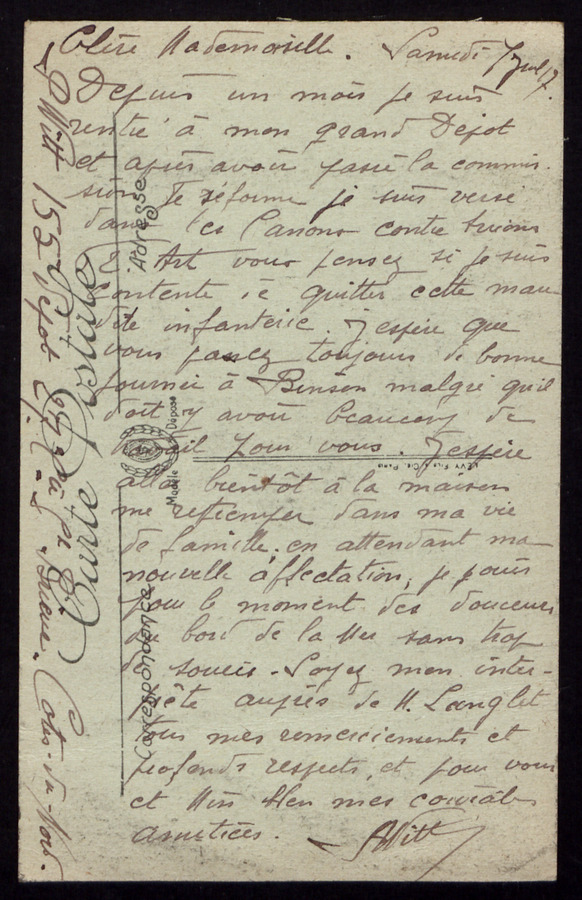 Chère Mademoiselle. Samedi 7 Juil 17.
Depuis un mois je suis
rentré à mon grand Dépot
et après avoir passé la commis
sion de réforme je suis versé
dans les Canons contre
Art vous pensez si je suis
contente de quitter cette mau
dite infanterie. J'espère que
vous passez toujours de bonne
journée à Binson malgré qu'il
doit y avoir beaucoup de
travail pour vous. J'espère
aller bientôt à la maison
me retremper dans ma vie
de famille, en attendant ma
nouvelle affectation, je jouis
pour le moment des douceurs
du bord de la Mer sans trop
de soucis. Soyez mon inter-
prète auprès de M. Langlet
tous mes remerciements et
profonds respects, et pour vous
et mes
amitiées. AWitt
AWitt 155 Dépot Cotes-du-Nord.
Carte Postale
Adresse
Correspondance
Modèle Déposé
LEVY FILS & Cie, PARIS